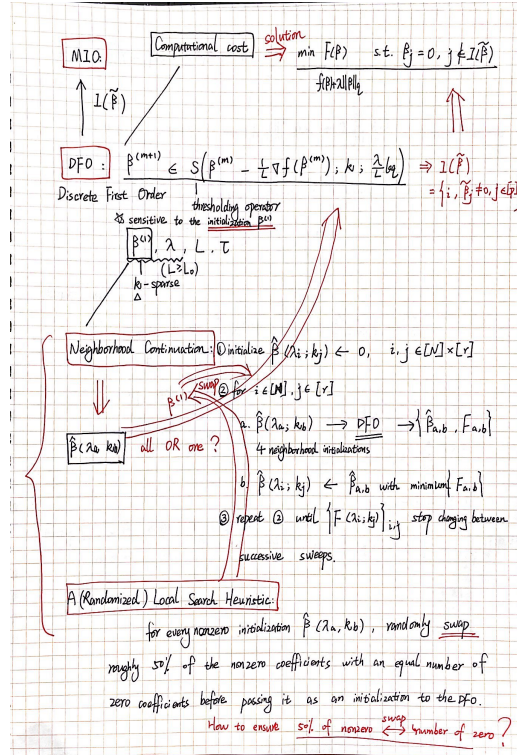 MIO:
Computational cost
solution ⇒
min F(β)    s.t. β_j = 0, j ∉ I(β̃)
f(β)+λ||β||_q
↑ I(β̃)
DFO: β^(m+1) ∈ S(β^(m) - 1/L ∇f(β^(m)); k; λ/L l_q) ⇒ I(β̃)
= {i, β̃_j ≠ 0, j∈[p]
Discrete First Order
thresholding operator
☆ sensitive to the initialization β^(1)
β^(1), λ, L, τ
(L ≥ L_0)
k-sparse
Δ
Neighborhood Continuation: ① initialize β̂(λ_i; k_j) ← 0, i, j ∈ [N]×[r]
swap
β^(1)
② for i∈[N], j∈[r]
β̂(λ_a, k_b) all OR one ?
a. β̂(λ_a; k_b) → DFO → {β̂_a,b, F_a,b}
4 neighborhood initializations
b. β̂(λ_i; k_j) ← β̂_a,b with minimum{F_a,b}
③ repeat ② until {F(λ_i; k_j)}_i,j stop changing between
successive sweeps.
A (Randomized) Local Search Heuristic:
for every nonzero initialization β̂(λ_a, k_b), randomly swap
roughly 50% of the nonzero coefficients with an equal number of
zero coefficients before passing it as an initialization to the DFO.
How to ensure 50% of nonzero ⟷ swap number of zero ?